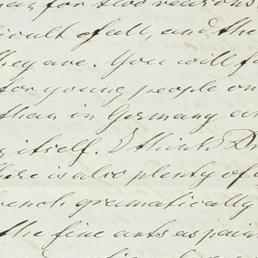 for two reasons
difficult of all, and the
they are. You will f
for young people on
than in Germany an
itself. I think Dr
is also plenty of
french gramatically
the fine arts as pain